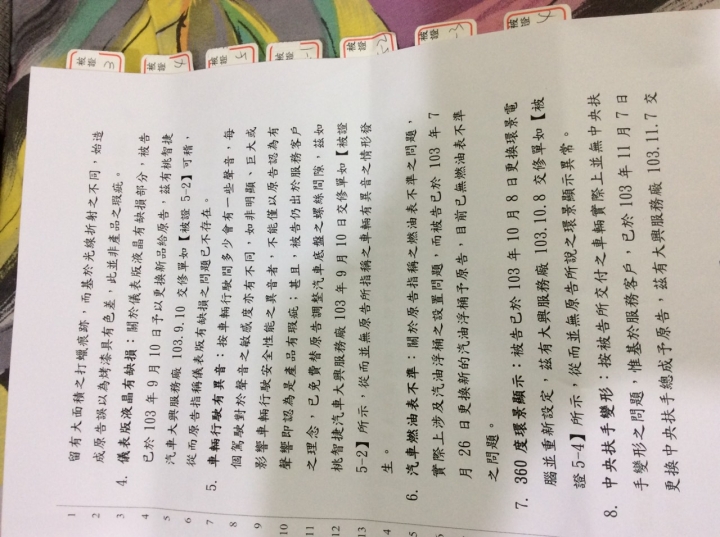 被證 3
被證 4
被證 5
被證
被證
被證
被證 4
1 留有大面積之打蠟痕跡，而基於光線折射之不同，始造
2 成原告誤以為烤漆具有色差，此並非產品之瑕疵。
3 4. 儀表版液晶有缺損：關於儀表版液晶有缺損部分，被告
4 已於 103 年 9 月 10 日予以更換新品給原告，茲有桃智捷
5 汽車大興服務廠 103.9.10 交修單如【被證 5-2】可稽，
6 從而原告指稱儀表版有缺損之問題已不存在。
7 5. 車輛行駛有異音：按車輛行駛間多少會有一些聲音，每
8 個駕駛對於聲音之敏感度亦有不同，如非明顯、巨大或
9 影響車輛行駛安全性能之異音者，不能僅以原告認為有
10 聲響即認為是產品有瑕疵；甚且，被告仍出於服務客戶
11 之理念，已免費替原告調整汽車底盤之螺絲間隙，茲如
12 桃智捷汽車大興服務廠 103 年 9 月 10 日交修單如【被證
13 5-2】所示，從而並無原告所指稱之車輛有異音之情形發
4 生。
5 6. 汽車燃油表不準：關於原告指稱之燃油表不準之問題，
6 實際上涉及汽油浮桶之設置問題，而被告已於 103 年 7
月 26 日更換新的汽油浮桶予原告，目前已無燃油表不準
之問題。
7. 360 度環景顯示：被告已於 103 年 10 月 8 日更換環景電
腦並重新設定，茲有大興服務廠 103.10.8 交修單如【被
證 5-4】所示，從而並無原告所說之環景顯示異常。
8. 中央扶手變形：按被告所交付之車輛實際上並無中央扶
手變形之問題，惟基於服務客戶，已於 103 年 11 月 7 日
更換中央扶手總成予原告，茲有大興服務廠 103.11.7 交